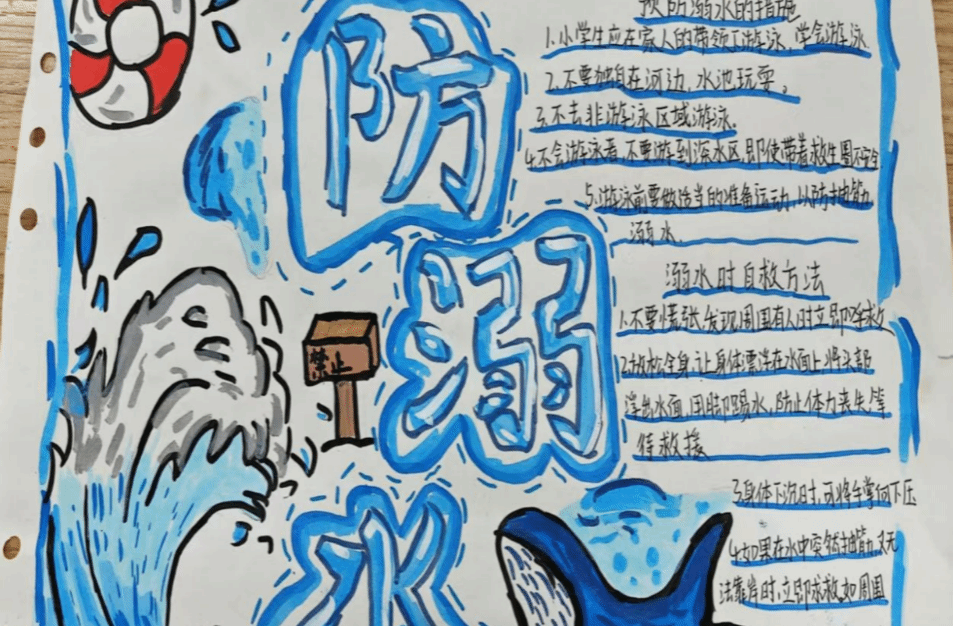 防
溺
水
禁止
预防溺水的措施
1.小学生应在家人的带领下游泳,学会游泳
2.不要独自在河边、水池玩耍。
3.不去非游泳区域游泳。
4.不会游泳者,不要游到深水区,即使带着救生圈不安全
5.游泳前要做适当的准备运动,以防抽筋
溺水.
溺水时自救方法
1.不要慌张,发现周围有人时立即呼救
2.放松全身,让身体漂浮在水面上,将头部
浮出水面,用脚踢水,防止体力丧失,等
待救援
3.身体下沉时,可将手掌向下压
4.如果在水中突然抽筋,又无
法靠岸时,立即求救.如周围